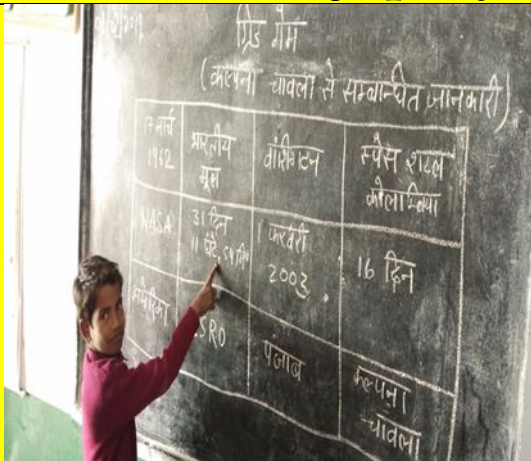 ग्रिड गेम
(कल्पना चावला से सम्बन्धित जानकारी)
17 मार्च 1962
भारतीय मूल
वाशिंगटन
स्पेस शटल कोलम्बिया
NASA
31 दिन
11 घंटे, 54 मि०
1 फरवरी
2003
16 दिन
अमेरिका
ISRO
पंजाब
कल्पना
चावला